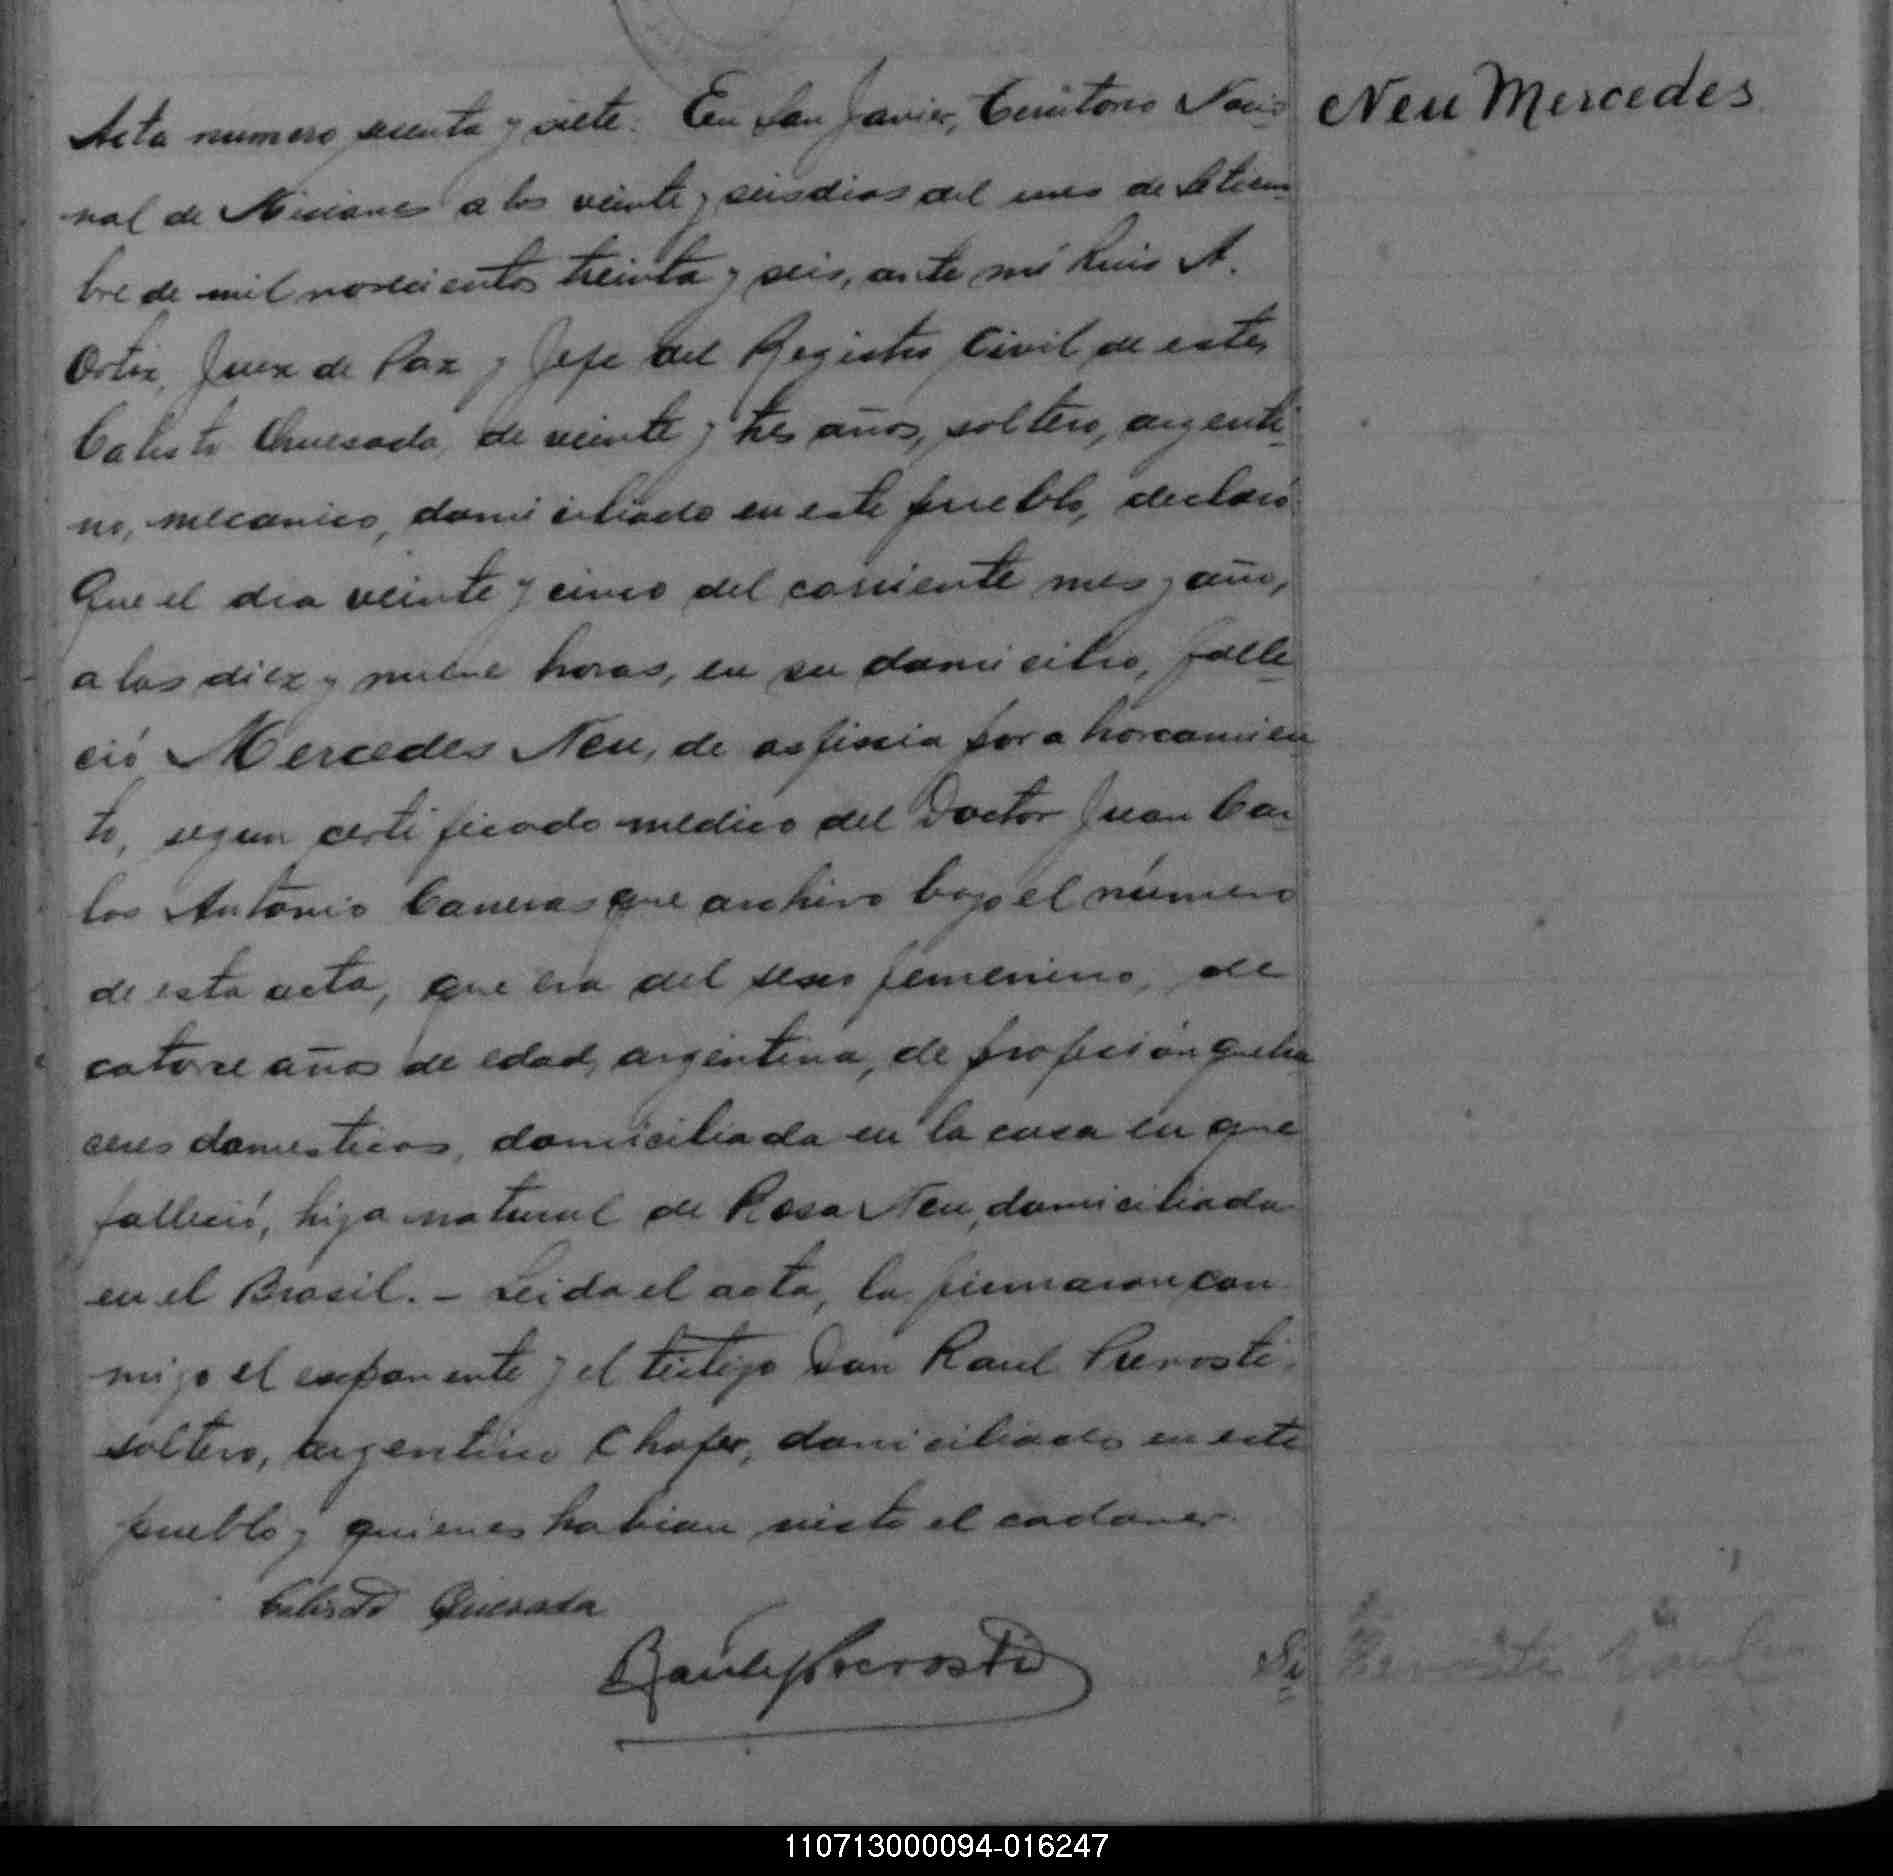 Neu Mercedes
Acta numero sesenta y siete. En San Javier, Territorio Nacio-
nal de Misiones a los veinte y seis dias del mes de Setiem-
bre de mil novecientos treinta y seis, ante mi Luis A.
Ortiz, Juez de Paz y Jefe del Registro Civil de este,
Calisto Quesada, de veinte y tres años, soltero, argenti-
no, mecanico, domiciliado en este pueblo, declaró
Que el dia veinte y cinco del corriente mes y año,
a las diez y nueve horas, en su domicilio, falle-
ció Mercedes Neu, de asfixia por ahorcamien
to, segun certificado medico del Doctor Juan Car-
los Antonio que archivo bajo el número
de esta acta, que era del sexo femenino, de
catorce años de edad, argentina, de profesión queha
ceres domesticos, domiciliada en la casa en que
falleció, hija natural de Rosa Neu, domiciliada
en el Brasil. - Leida el acta, la firmaron con
migo el exponente y el testigo Don Raul Prevosti,
soltero, argentino Chofer, domiciliado en este
pueblo y quienes habian visto el cadaver.
Calisto Quesada
Raul Prevosti